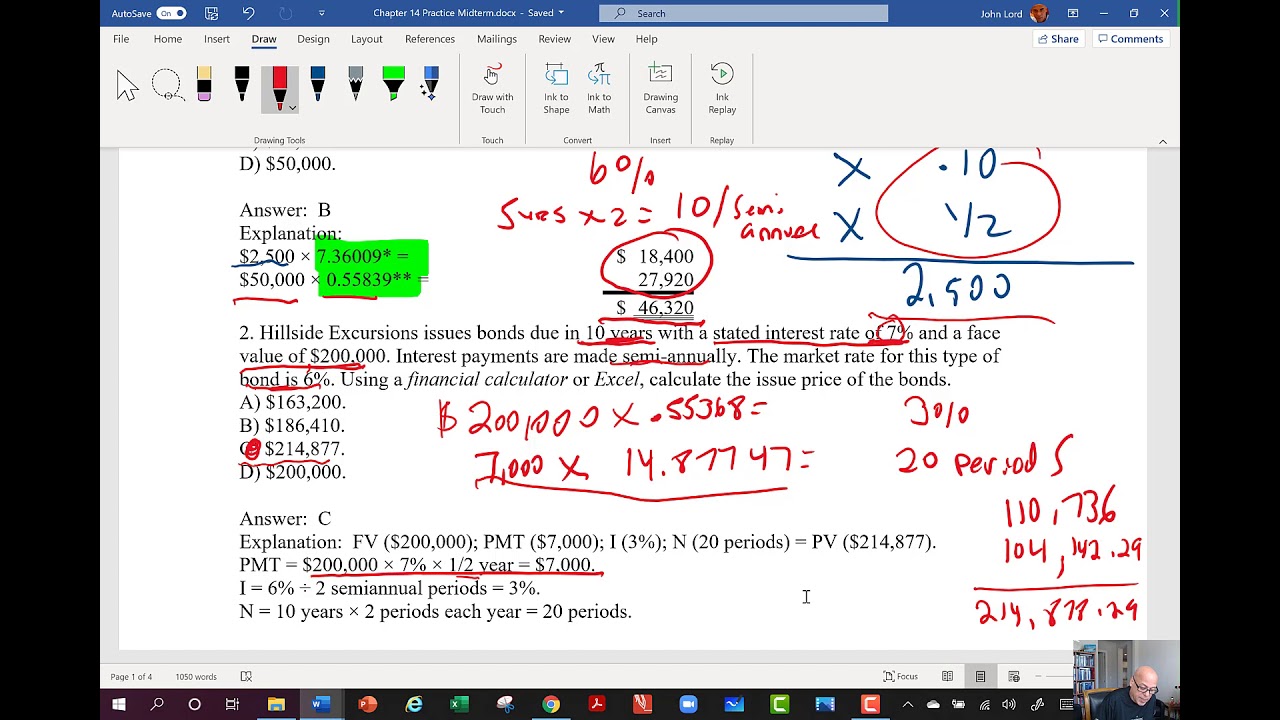 AutoSave On Chapter 14 Practice Midterm.docx - Saved Search John Lord
File Home Insert Draw Design Layout References Mailings Review View Help Share Comments
Draw with Touch
Ink to Shape
Ink to Math
Drawing Canvas
Ink Replay
Drawing Tools Touch Convert Insert Replay
D) $50,000.
6%
5yrs x 2 = 10/semi annual
X .10
X 1/2
2,500
Answer: B
Explanation:
$2,500 × 7.36009* = $ 18,400
$50,000 × 0.55839** = 27,920
$ 46,320
2. Hillside Excursions issues bonds due in 10 years with a stated interest rate of 7% and a face
value of $200,000. Interest payments are made semi-annually. The market rate for this type of
bond is 6%. Using a financial calculator or Excel, calculate the issue price of the bonds.
A) $163,200.
B) $186,410.
$214,877.
D) $200,000.
$200,000 x .55368=
7,000 x 14.87747=
3%
20 periods
110,736
104,142.29
214,878.29
Answer: C
Explanation: FV ($200,000); PMT ($7,000); I (3%); N (20 periods) = PV ($214,877).
PMT = $200,000 × 7% × 1/2 year = $7,000.
I = 6% ÷ 2 semiannual periods = 3%.
N = 10 years × 2 periods each year = 20 periods.
Page 1 of 4 1050 words Focus